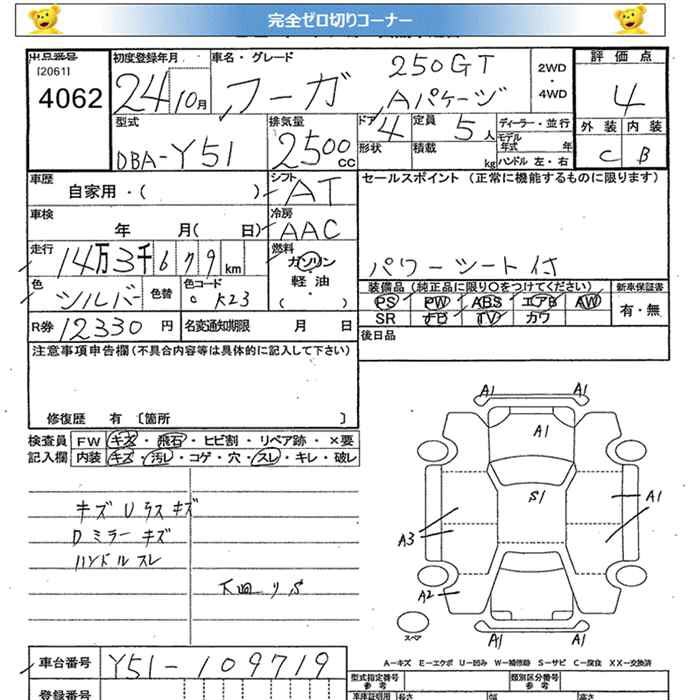 完全ゼロ切りコーナー
出品番号 初度登録年月 車名・グレード 評価点
[2061] 4062 24 10月 フーガ 250GT Aパケージ 2WD・4WD 4
外装 内装
C B
型式 排気量 ドア 定員 ディーラー・並行
DBA-Y51 2500 CC 4 5人 モデル年式 年
形状 積載 kg ハンドル 左・右
車歴 シフト セールスポイント(正常に機能するものに限ります)
自家用・( ) AT
車検 冷房
年 月( 日) AAC
走行 燃料
14万3千679km ガソリン・軽油・( )
パワーシート付
色 色替 色コード
シルバー K23
装備品(純正品に限り○をつけてください) 新車保証書
PS PW ABS エアB AW 有・無
SR ナビ TV カワ
R券 12330円 名変通知期限 月 日
後日品
注意事項申告欄(不具合内容等は具体的に記入して下さい)
修復歴 有〔箇所 〕
検査員 FW キズ・飛石・ヒビ割・リペア跡・×要
記入欄 内装 キズ・汚レ・コゲ・穴・スレ・キレ・破レ
キズ Uラス キズ
Dミラー キズ
ハンドル スレ
下回りS
A1 A1
A1
S1
A1
A3
A2
A1 A1
スペア
A―キズ E―エクボ U―凹み W―補修跡 S―サビ C―腐食 XX―交換済
車台番号 Y51-109719
型式指定番号 類別区分番号
登録番号 参考 長さ 幅 高さ
車庫証明用